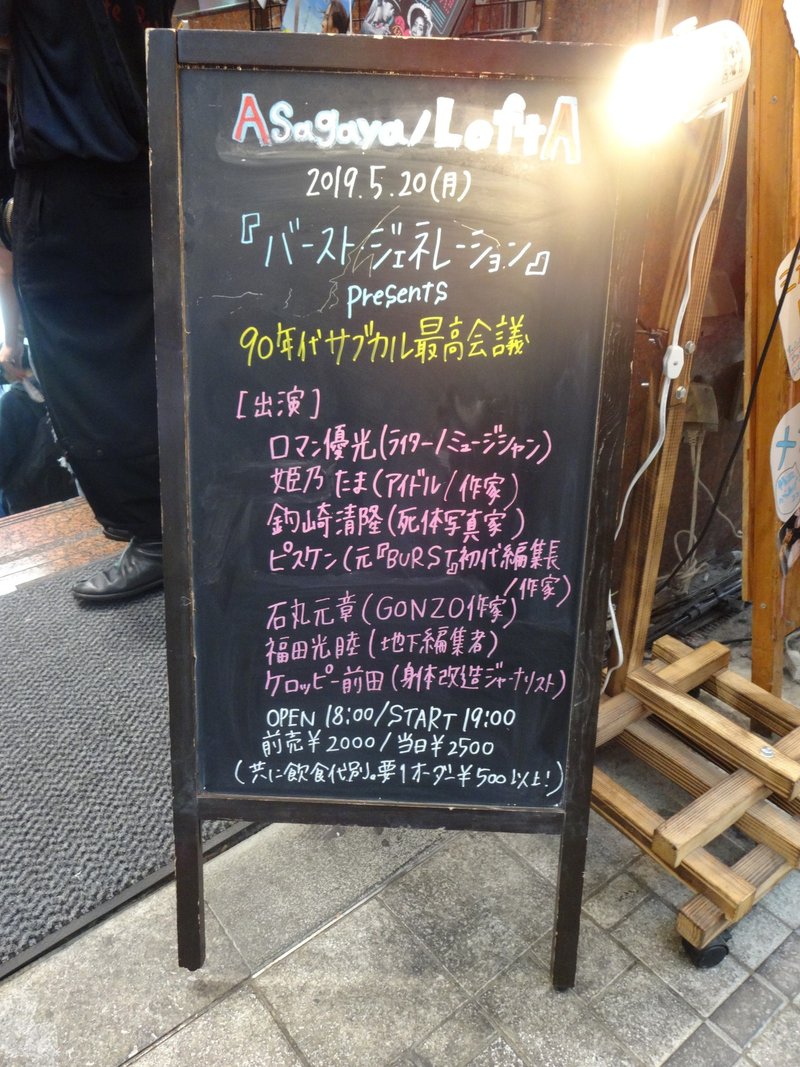 Asagaya/LoftA
2019.5.20(月)
『バースト・ジェネレーション』
presents
90年代サブカル最高会議
[出演]
ロマン優光(ライター/ミュージシャン)
姫乃たま(アイドル/作家)
釣崎清隆(死体写真家)
ピスケン(元『BURST』初代編集長
/作家)
石丸元章(GONZO作家)
福田光睦(地下編集者)
ケロッピー前田(身体改造ジャーナリスト)
OPEN 18:00/START 19:00
前売¥2000/当日¥2500
(共に飲食代別。要1オーダー¥500以上!)